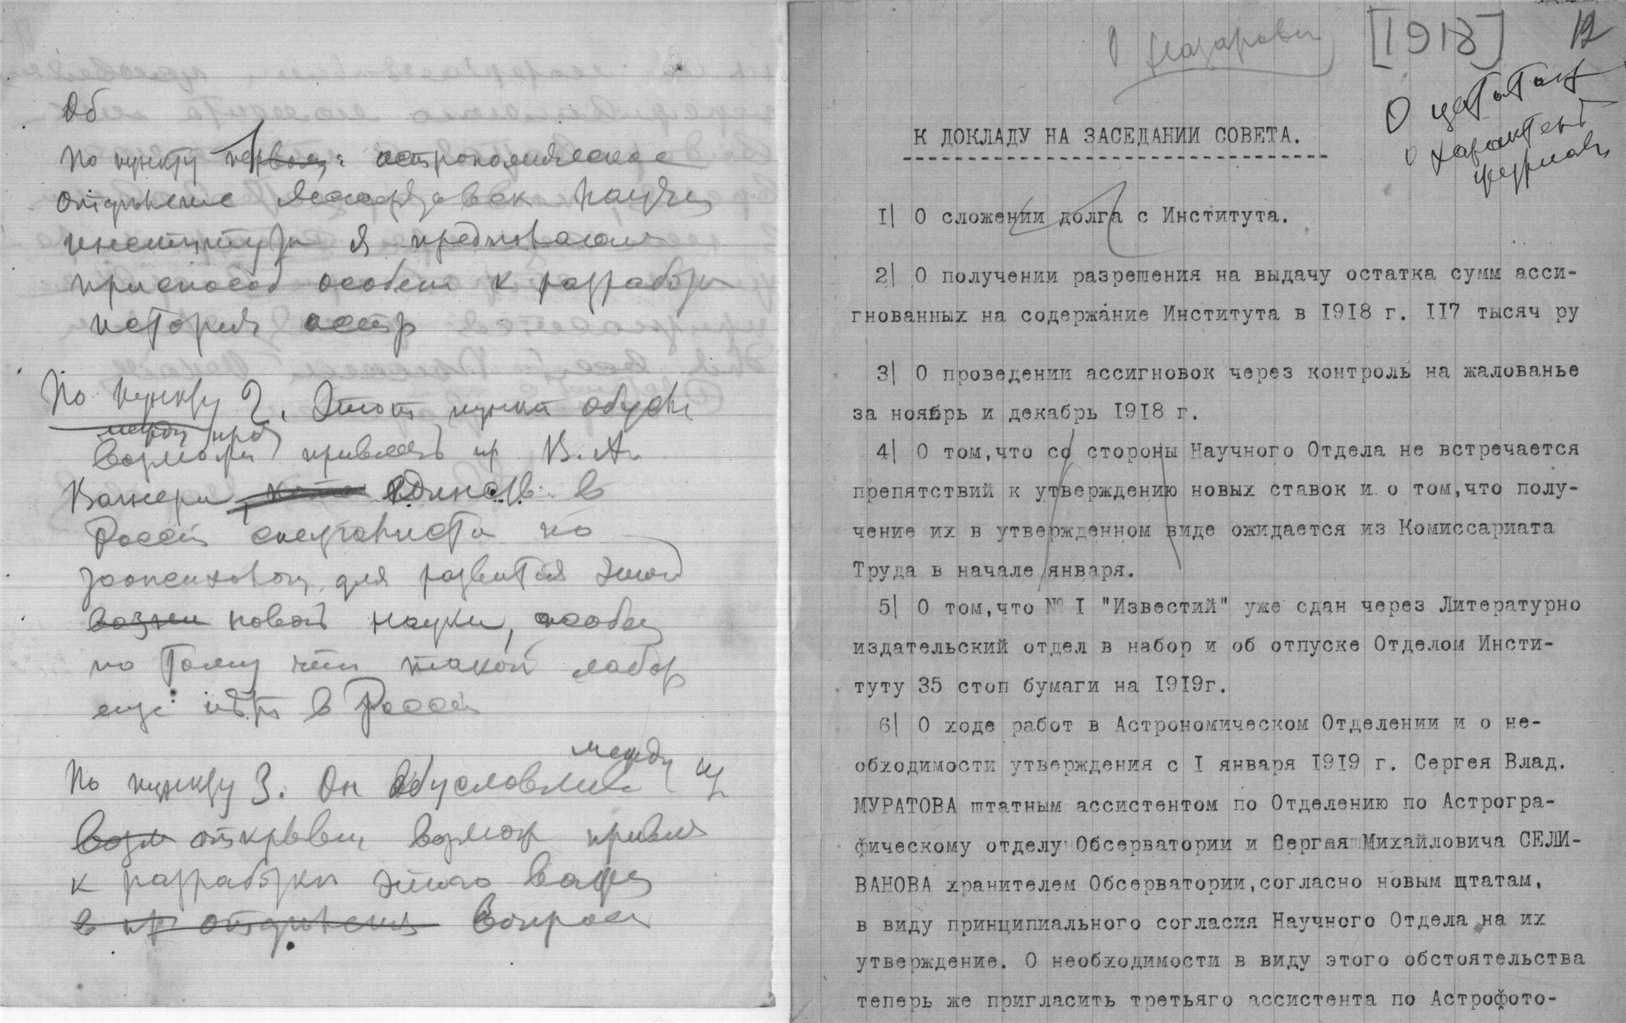 Об
По пункту
отделение научн
я
особен к разработк
истории астр
По пункту 2. Этот пункт
между проч
возможн привлечь пр В. А.
Вагнера, в
России специалиста по
зоопсихологи, для развития этой
новой науки, особен
по тому что такой лабор
еще нѣтъ в России
между
По пункту 3. Он обусловлив
возм открыв возмож привлеч
к разработки этого
в отделения вопрос
О [1918] 12
О
О характере
журнала
К ДОКЛАДУ НА ЗАСЕДАНИИ СОВЕТА.
I| О сложении долга с Института.
2| О получении разрешения на выдачу остатка сумм асси-
гнованных на содержание Института в I9I8 г. II7 тысяч ру
3| О проведении ассигновок через контроль на жалованье
за ноябрь и декабрь I9I8 г.
4| О том,что со стороны Научного Отдела не встречается
препятствий к утверждению новых ставок и о том,что полу-
чение их в утвержденном виде ожидается из Комиссариата
Труда в начале января.
5| О том,что № I "Известий" уже сдан через Литературно
издательский отдел в набор и об отпуске Отделом Инсти-
туту 35 стоп бумаги на I9I9г.
6| О ходе работ в Астрономическом Отделении и о не-
обходимости утверждения с I января I9I9 г. Сергея Влад.
МУРАТОВА штатным ассистентом по Отделению по Астрогра-
фическому отделу Обсерватории и Сергея Михайловича СЕЛИ-
ВАНОВА хранителем Обсерватории,согласно новым штатам,
в виду принципиального согласия Научного Отдела на их
утверждение. О необходимости в виду этого обстоятельства
теперь же пригласить третьяго ассистента по Астрофото-